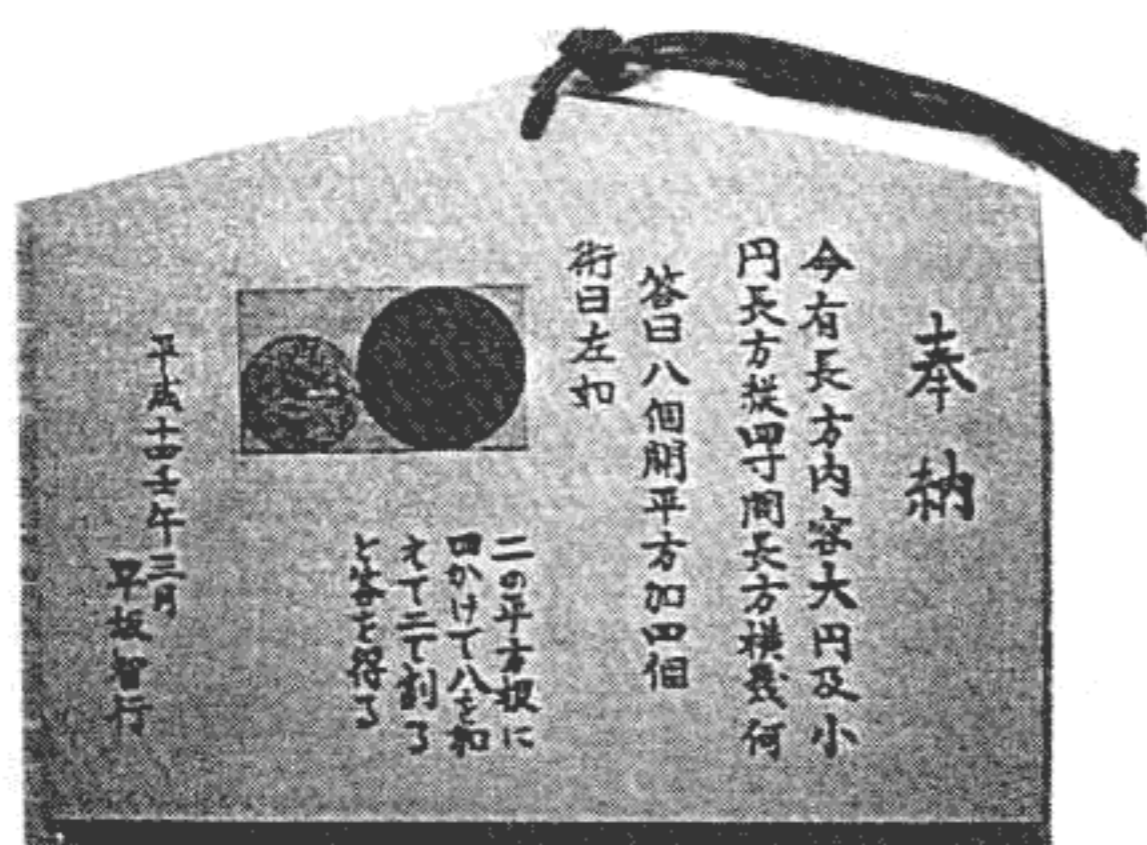 奉納
今有長方内容大円及小
円長方縦四寸問長方横幾何
答曰八個開平方加四個
術曰左如
二の平方根に
四かけて八を加
えて二で割る
と答を得る
平成十四壬午三月
早坂智行